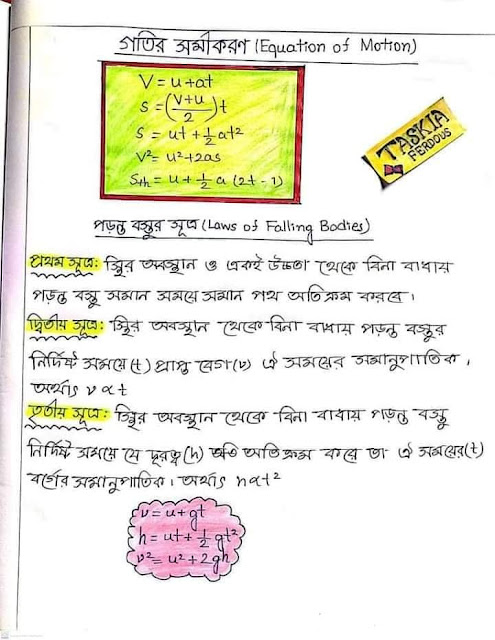 গতির সমীকরণ (Equation of Motion)
V = u+at
s = (v+u/2)t
s = ut + ½ at²
v² = u²+2as
Sth = u + ½ a (2t - 1)
TASKIA
FERDOUS
পড়ন্ত বস্তুর সূত্র (Laws of Falling Bodies)
প্রথম সূত্র: স্থির অবস্থান ও একই উচ্চতা থেকে বিনা বাধায়
পড়ন্ত বস্তু সমান সময়ে সমান পথ অতিক্রম করবে।
দ্বিতীয় সূত্র: স্থির অবস্থান থেকে বিনা বাধায় পড়ন্ত বস্তুর
নির্দিষ্ট সময়ে (t) প্রাপ্ত বেগ (v) ঐ সময়ের সমানুপাতিক,
অর্থাৎ v ∝ t
তৃতীয় সূত্র: স্থির অবস্থান থেকে বিনা বাধায় পড়ন্ত বস্তু
নির্দিষ্ট সময়ে যে দূরত্ব (h) অতি অতিক্রম করে তা ঐ সময়ের (t)
বর্গের সমানুপাতিক। অর্থাৎ h∝t²
v = u+gt
h = ut + ½ gt²
v² = u² + 2gh